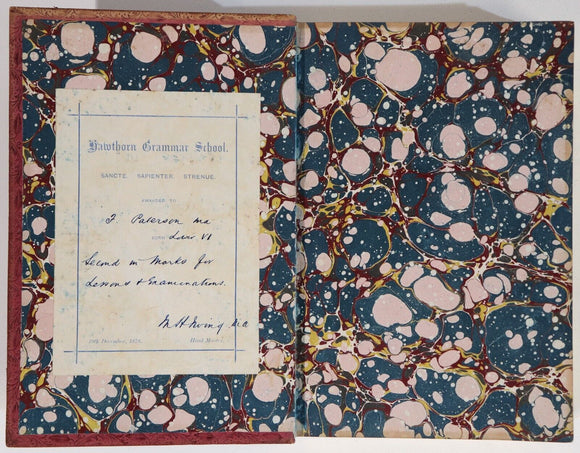 Hawthorn Grammar School.
SANCTE. SAPIENTER. STRENUE.
AWARDED TO
F Paterson ma
FORM Lower VI
Second in Marks for
Lessons & Examinations.
M H Irving M.A
19th December, 1878. Head Master.